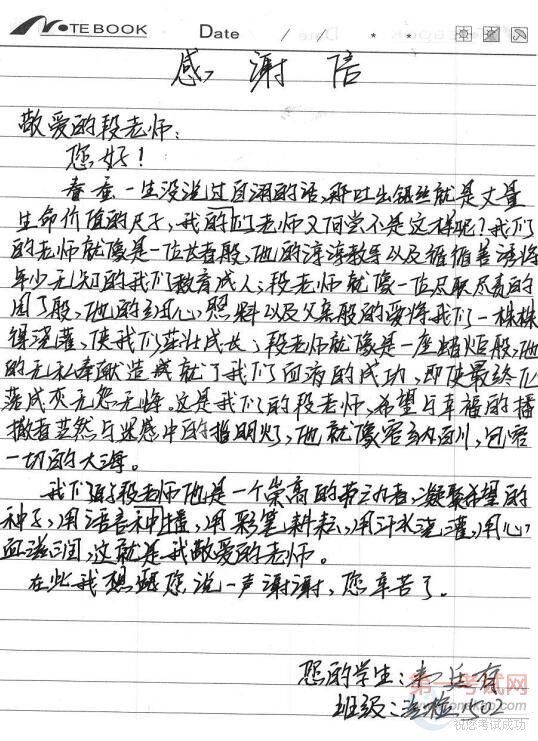 NOTEBOOK Date / / * *
感 谢 信
敬爱的段老师:
您好!
春蚕一生没说过自诩的话,那吐出银丝就是丈量
生命价值的尺子,我的的老师又何尝不是这样呢?我们
的老师就像是一位长者般,他的淳淳教导以及循循善诱将
年少无知的我们教育成人;段老师就像一位尽职尽责的
园丁般,他的细心照料以及父亲般的爱将我们一株株
得浇灌,使我们茁壮成长;段老师就像是一座蜡炬般,他
的无私奉献造就了我们的成功,即使最终化
落成灰无怨无悔。这是我们的段老师,希望与幸福的播
撒者茫然与迷惑中的指明灯,他就像容纳百川,包容
一切的大海。
我们的段老师他是一个崇高的劳动者,凝聚希望的
种子,用语言种播,用彩笔耕耘,用汗水浇灌,用心
血滋润,这就是我敬爱的老师。
在此我想跟您说一声谢谢,您辛苦了。
您的学生:
班级:
第一考试网
祝您考试成功